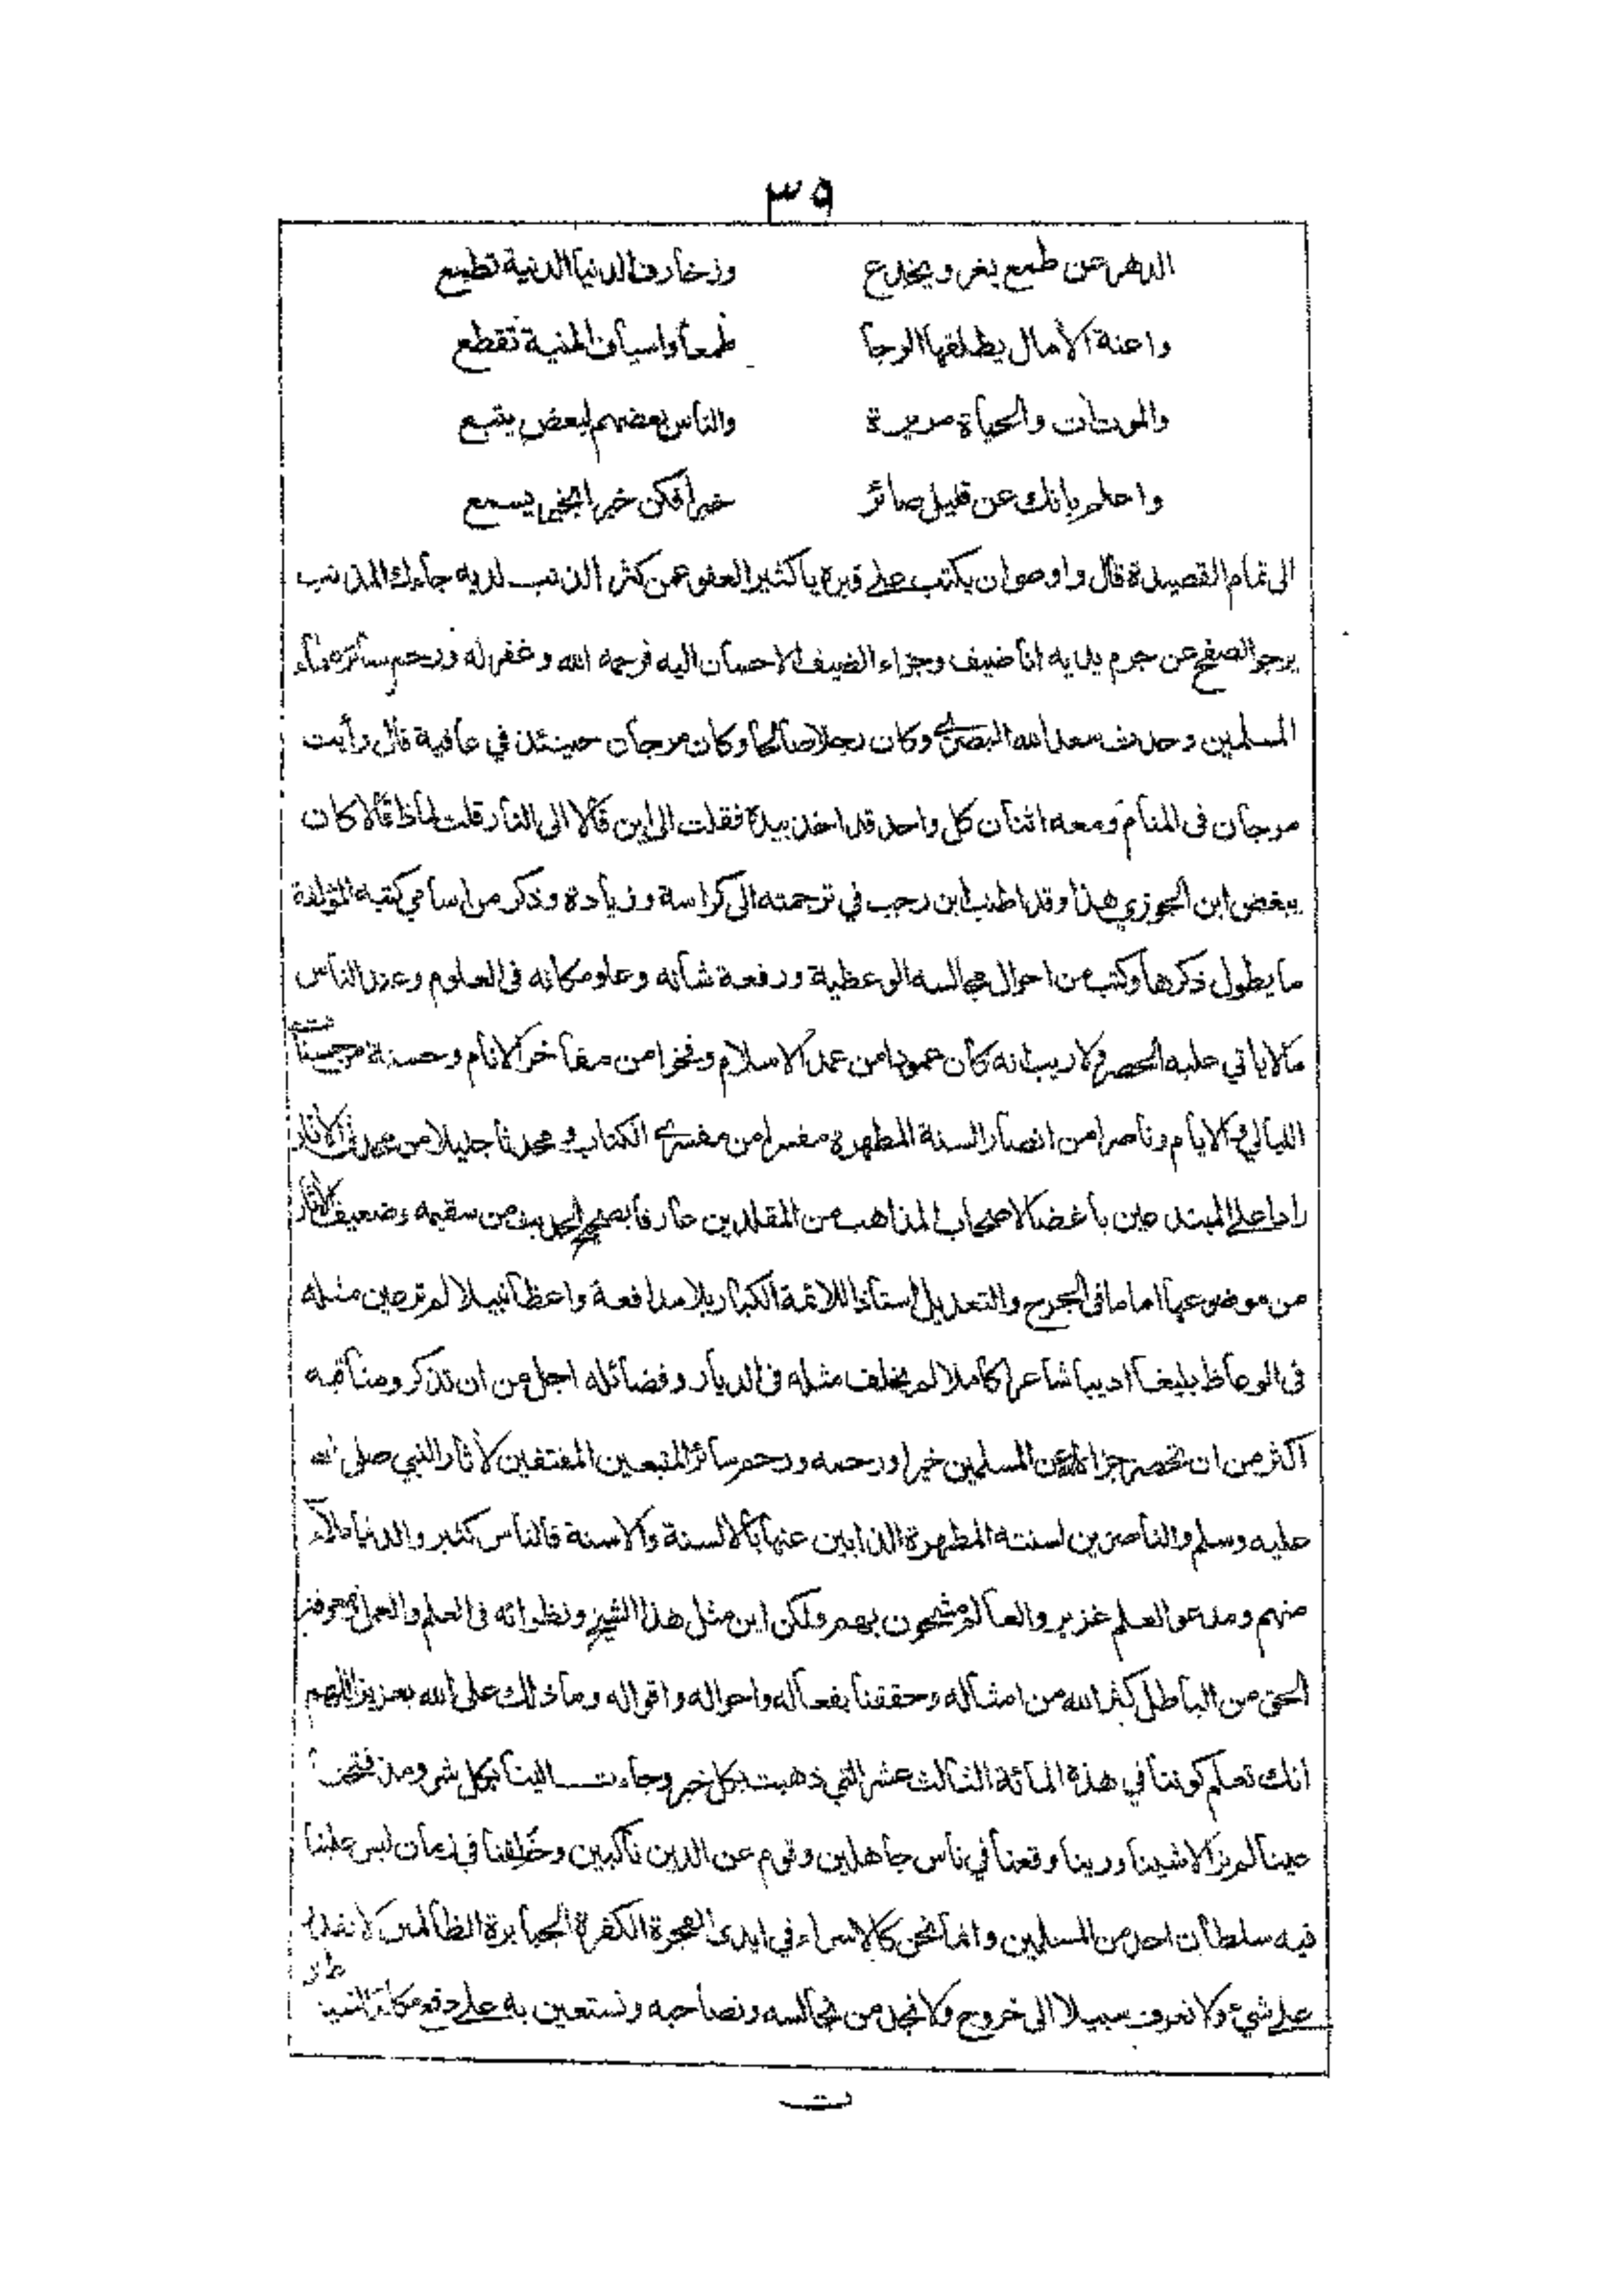 ٣٩
الدهر عن طمع يغر ويخدع وزخارف الدنيا الدنية تطمع
واعنة الآمال يطلقها الرجا طمعا واسياف المنية تقطع
والموت ات والحياة مريرة والناس بعضهم لبعض يتبع
واعلم بانك عن قليل صائر خبرا فكن خبرا بخير يسمع
الى تمام القصيدة قال واوصى ان يكتب على قبره يا كثير العفو عمن كثر الذنب لديه جاءك المذنب
يرجو الصفح عن جرم يديه انا ضيف وجزاء الضيف الاحسان اليه فرحمه الله وغفر له ورحم سائر علماء
المسلمين وحدث سعد الله البصري وكان رجلا صالحا وكان مرجان حينئذ في عافية قال رأيت
مرجان فى المنام ومعه اثنان كل واحد قد اخذ بيده فقلت الى اين قالا الى النار قلت لماذا قالا كان
يبغض ابن الجوزي هذا وقد اطنب ابن رجب في ترجمته الى كراسة وزيادة وذكر من اسامي كتبه المؤلفة
ما يطول ذكرها وكتب من احوال مجالسه الوعظية ورفعة شأنه وعلو مكانه فى العلوم وعند الناس
مالا ياتي عليه الحصر ولا ريب انه كان عمودا من عمد الاسلام وفخرا من مفاخر الانام وحسنة من حسنات
الليالي والايام وناصرا من انصار السنة المطهرة مفسرا من مفسري الكتاب ومحدثا جليلا من محدثى الآثار
رادا على المبتدعين باغضا لاصحاب المذاهب من المقلدين عارفا بصحيح الحديث من سقيمه وضعيف الآثار
من موضوعها اماما فى الجرح والتعديل استاذا للائمة الكبار بلا مدافعة واعظا نبيلا لم تر عين مثله
فى الوعاظ بليغا اديبا شاعرا كاملا لم يخلف مثله فى الديار وفضائله اجل من ان تذكر ومناقبه
اكثر من ان تحصر جزاه الله عن المسلمين خيرا ورحمه ورحم سائر المتبعين المقتفين لآثار النبي صلى الله
عليه وسلم والناصرين لسنته المطهرة الذابين عنها بالالسنة والاسنة فالناس كثير والدنيا ملآء
منهم ومدعو العلم غزير والعالم مشحون بهم ولكن اين مثل هذا الشيخ ونظرائه فى العلم والعمل ومعرفة
الحق من الباطل كثر الله من امثاله وحققنا بفعاله واحواله واقواله وما ذلك على الله بعزيز اللهم
انك تعلم كوننا في هذه المائة الثالث عشر التي ذهبت بكل خير وجاءت الينا بكل شر ومذ فتحنا
عينا لم نر الا شينا ورينا وقعنا في ناس جاهلين وقوم عن الدين ناكبين وخلفنا في زمان ليس علينا
فيه سلطان احد من المسلمين وانما نحن كالاسراء في ايدى الفجرة الكفرة الجبابرة الظالمين لا نقدر
على شيء ولا نعرف سبيلا الى خروج ولا نجد من نجالسه ونصاحبه ونستعين به على دفع مكائد الشيطان
ت